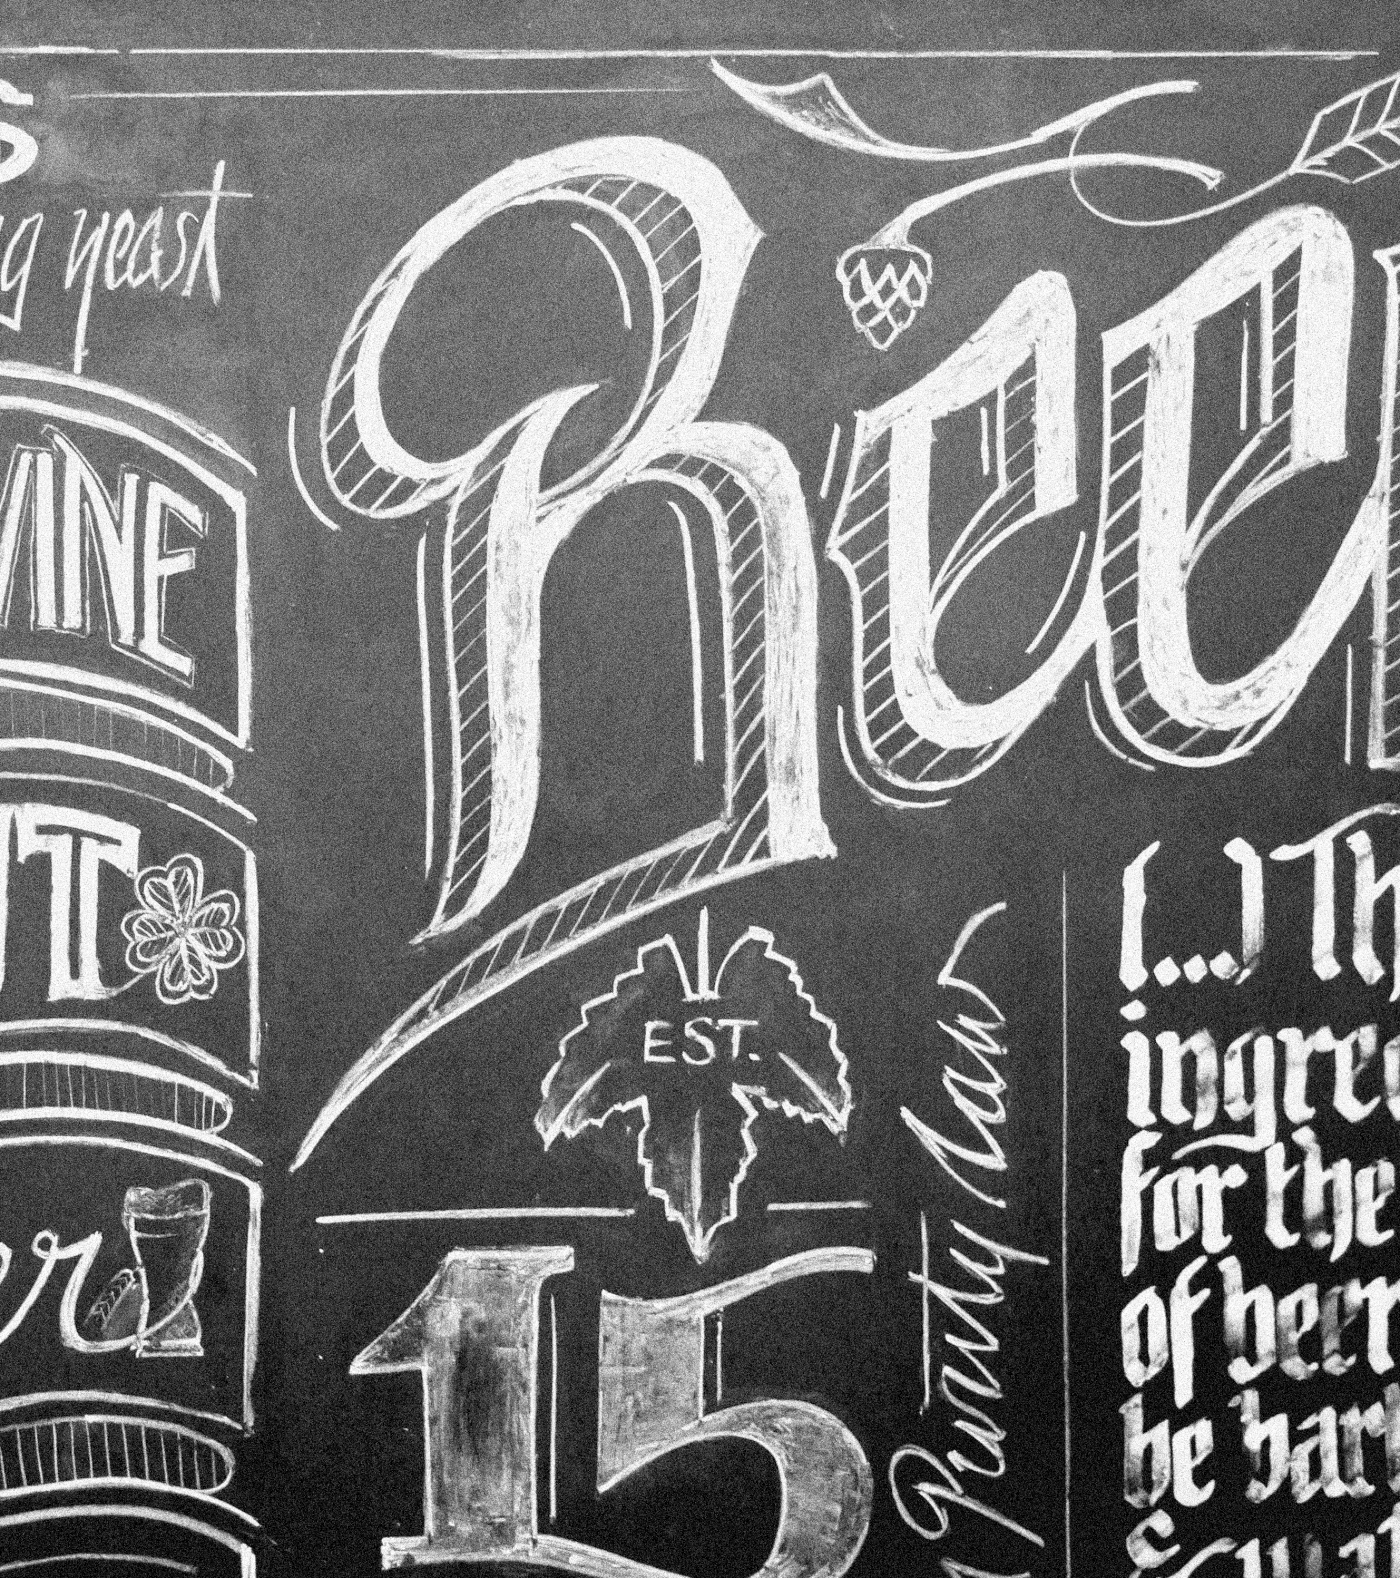 g yeast
T
er
Beer
EST.
15
Purity Law
[...] Th
ingred
for the
of beer
be bar